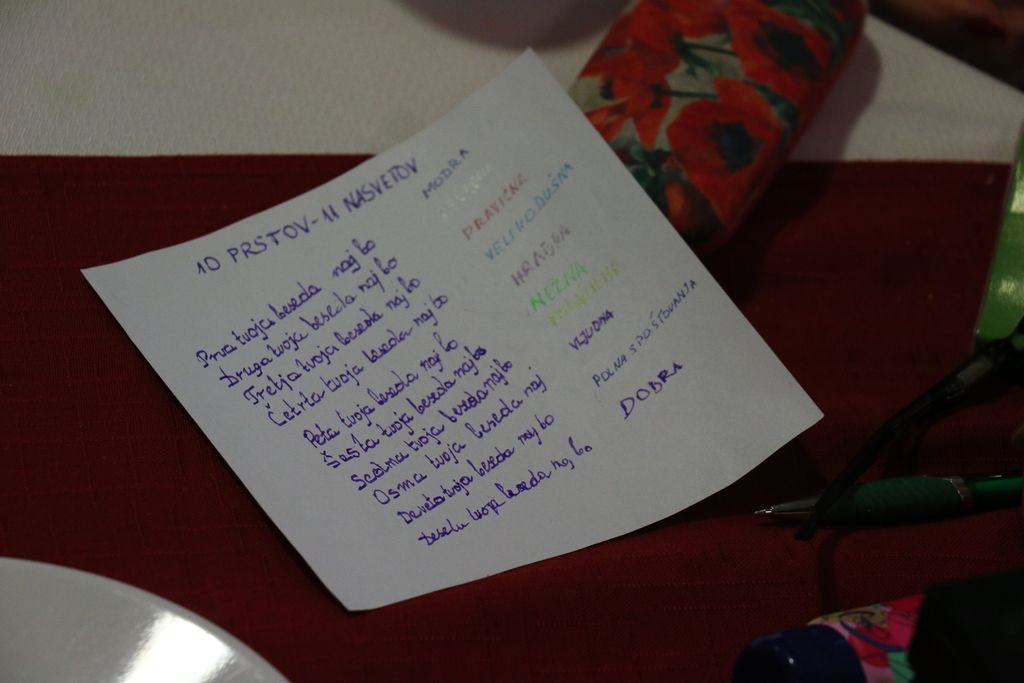 10 PRSTOV - 11 NASVETOV
Prva tvoja beseda naj bo MODRA
Druga tvoja beseda naj bo
Tretja tvoja beseda naj bo PRAVIČNA
Četrta tvoja beseda naj bo VELIKODUŠNA
Peta tvoja beseda naj bo HRABRA
Šesta tvoja beseda naj bo NEŽNA
Sedma tvoja beseda naj bo
Osma tvoja beseda naj VLJUDNA
Deveta tvoja beseda naj bo POLNA SPOŠTOVANJA
Deseta tvoja beseda naj bo DOBRA